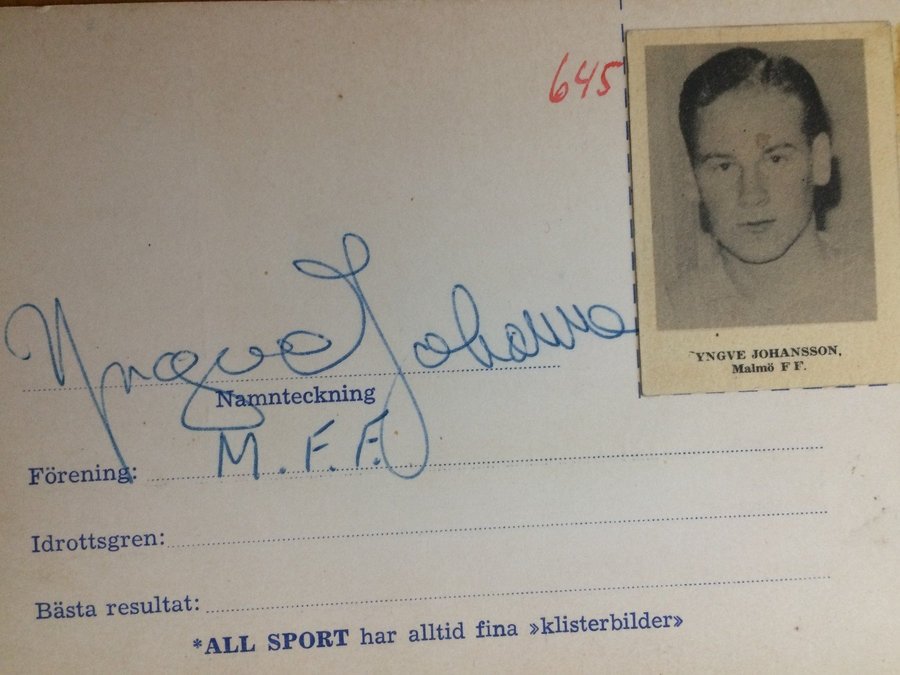 645
Yngve Johansso
YNGVE JOHANSSON,
Malmö F F.
Namnteckning
Förening: M.F.F.
Idrottsgren:
Bästa resultat:
*ALL SPORT har alltid fina »klisterbilder»